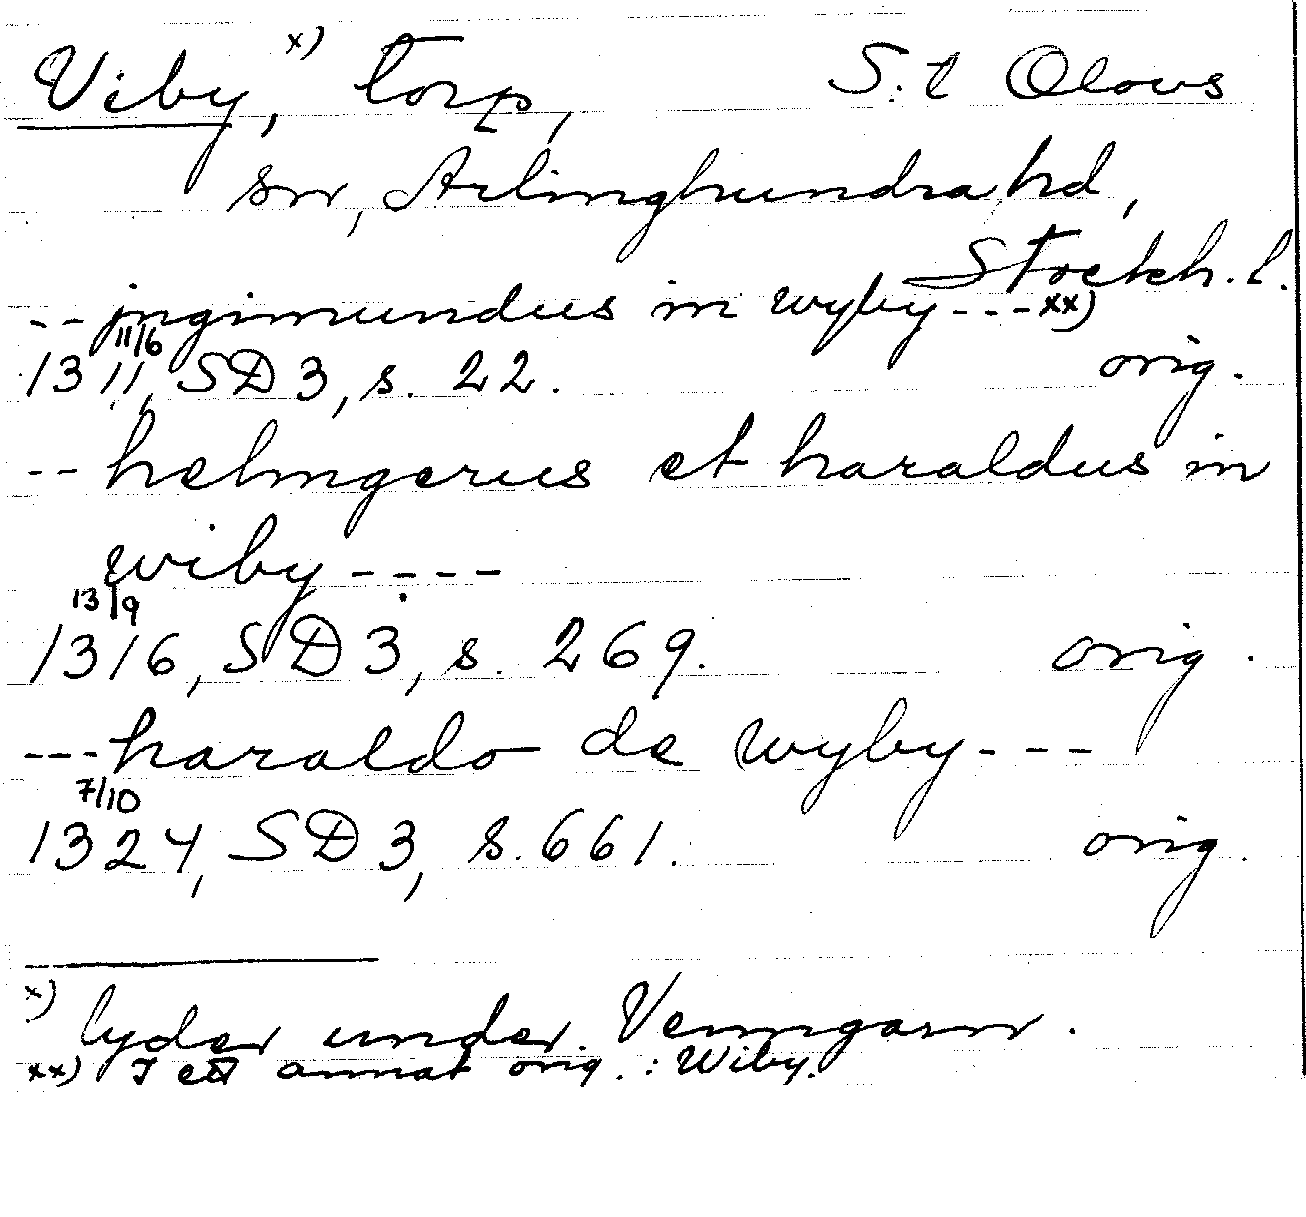 Viby, x) Torp, S:t Olovs
sn, Ärlinghundra hd,
Stockh. l.
-- jngimundus in wyby --- xx)
11/6
1311, SD 3, s. 22. orig.
-- helmgerus et haraldus in
wiby ----
13/9
1316, SD 3, s. 269. orig.
--- haraldo de wyby ---
7/10
1324, SD 3, s. 661. orig.
x) lyder under Venngarn.
xx) I ett annat orig. : Wiby.